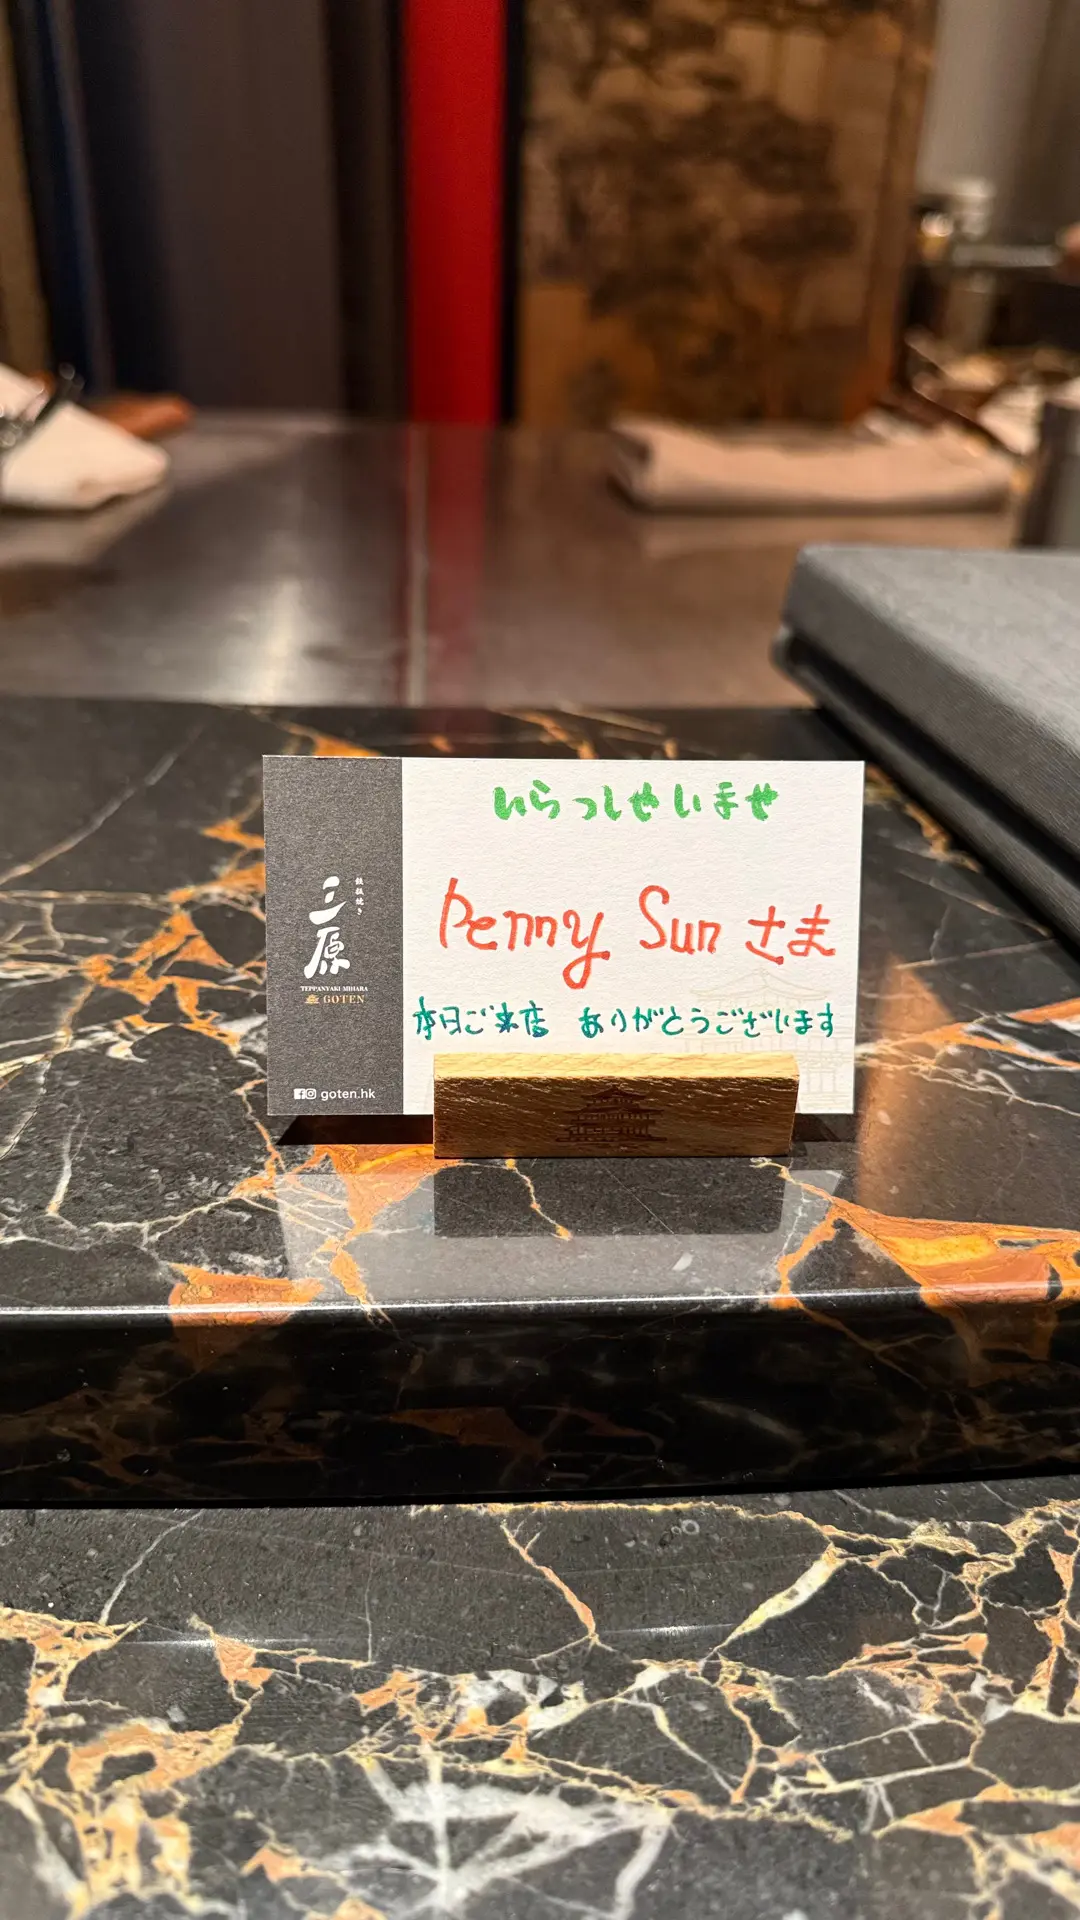 いらっしゃいませ
Penny Sun さま
本日ご来店 ありがとうございます
鉄板焼き
三原
TEPPANYAKI MIHARA
GOTEN
goten.hk